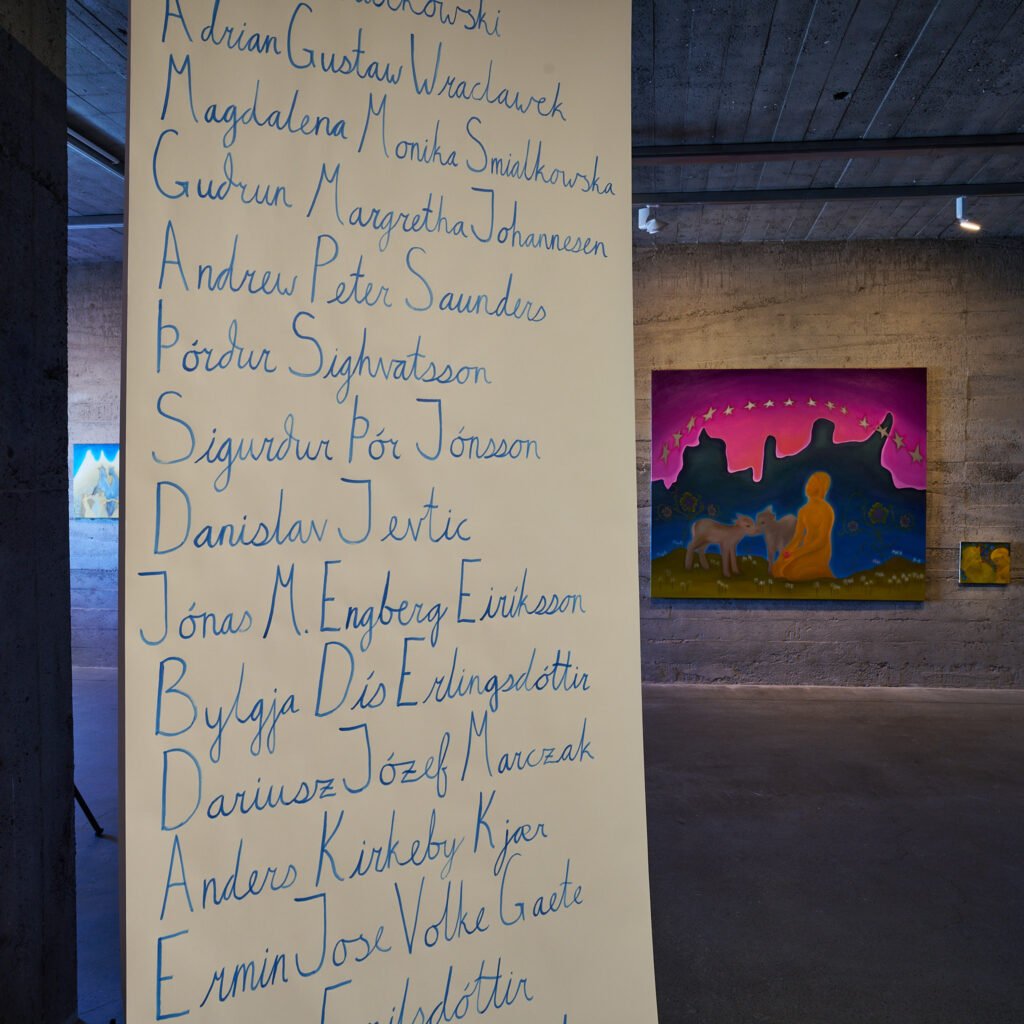 Adrian Gustaw Wraclawek
Magdalena Monika Smialkowska
Guðrun Margretha Johannesen
Andrew Peter Saunders
Þórður Sighvatsson
Sigurður Þór Jónsson
Danislav Jevtic
Jónas M. Engberg Eiríksson
Bylgja Dís Erlingsdóttir
Dariusz Józef Marczak
Anders Kirkeby Kjær
Ermin Jose Volke Gaete